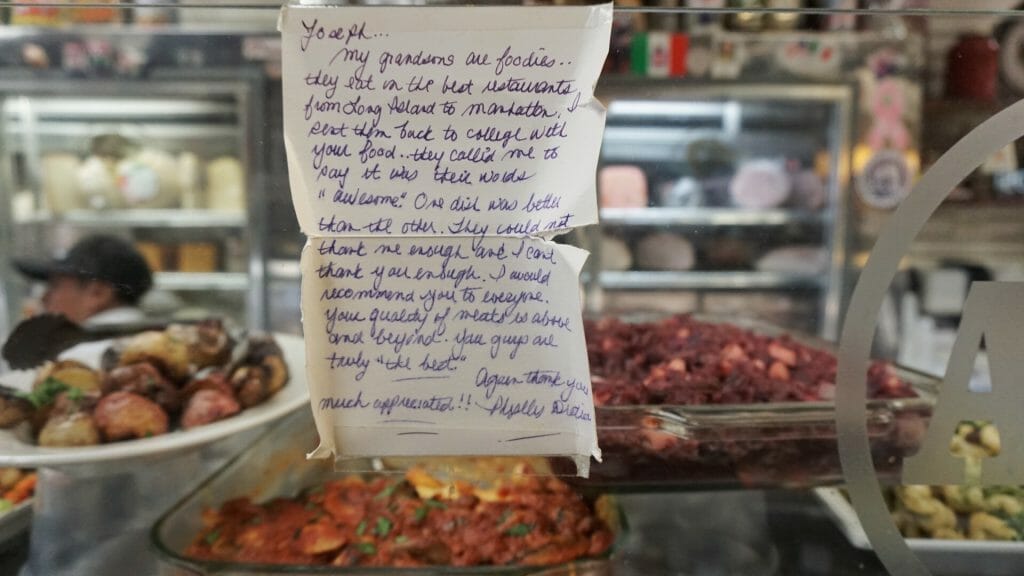 Joseph...
My grandsons are foodies..
they eat in the best restaurants
from Long Island to Manhattan. I
sent them back to college with
your food.. they called me to
say it was their words
"awesome". One dish was better
than the other. They could not
thank me enough and I can't
thank you enough. I would
recommend you to everyone.
Your quality of meats is above
and beyond. You guys are
truly "the best."
Again thank you
much appreciated!! Phyllis
A